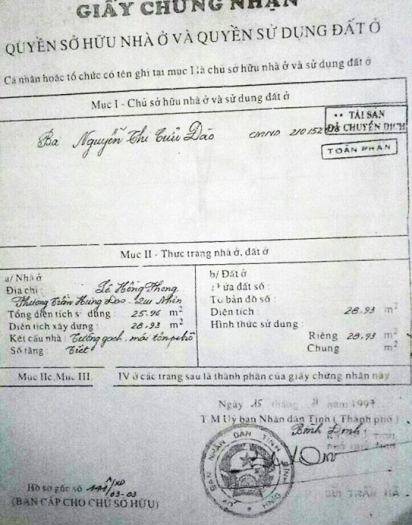 GIẤY CHỨNG NHẬN
QUYỀN SỞ HỮU NHÀ Ở VÀ QUYỀN SỬ DỤNG ĐẤT Ở
Cá nhân hoặc tổ chức có tên ghi tại mục I là chủ sở hữu nhà ở và sử dụng đất ở
Mục I - Chủ sở hữu nhà ở và sử dụng đất ở
TÀI SẢN
ĐÃ CHUYỂN DỊCH
TOÀN PHẦN
Bà Nguyễn Thị Cửu Đào CMND 210152
Mục II - Thực trạng nhà ở, đất ở
a/ Nhà ở
Địa chỉ : Lê Hồng Phong
Phường Trần Hưng Đạo - Qui Nhơn
Tổng diện tích sử dụng 25.96 m²
Diện tích xây dựng : 28.93 m²
Kết cấu nhà : Tường gạch, mái tôn
Số tầng : Trệt
b/ Đất ở
Thửa đất số :
Tờ bản đồ số :
Diện tích : 28.93 m²
Hình thức sử dụng :
Riêng 28.93 m²
Chung m²
Mục IIc, Mục III. IV ở các trang sau là thành phần của giấy chứng nhận này
Ngày 15 tháng năm 199
T M Uỷ ban Nhân dân Tỉnh ( Thành phố )
Bình Định
ỦY BAN NHÂN DÂN TỈNH BÌNH ĐỊNH
Hồ sơ gốc số
03-03
(BẢN CẤP CHO CHỦ SỞ HỮU)